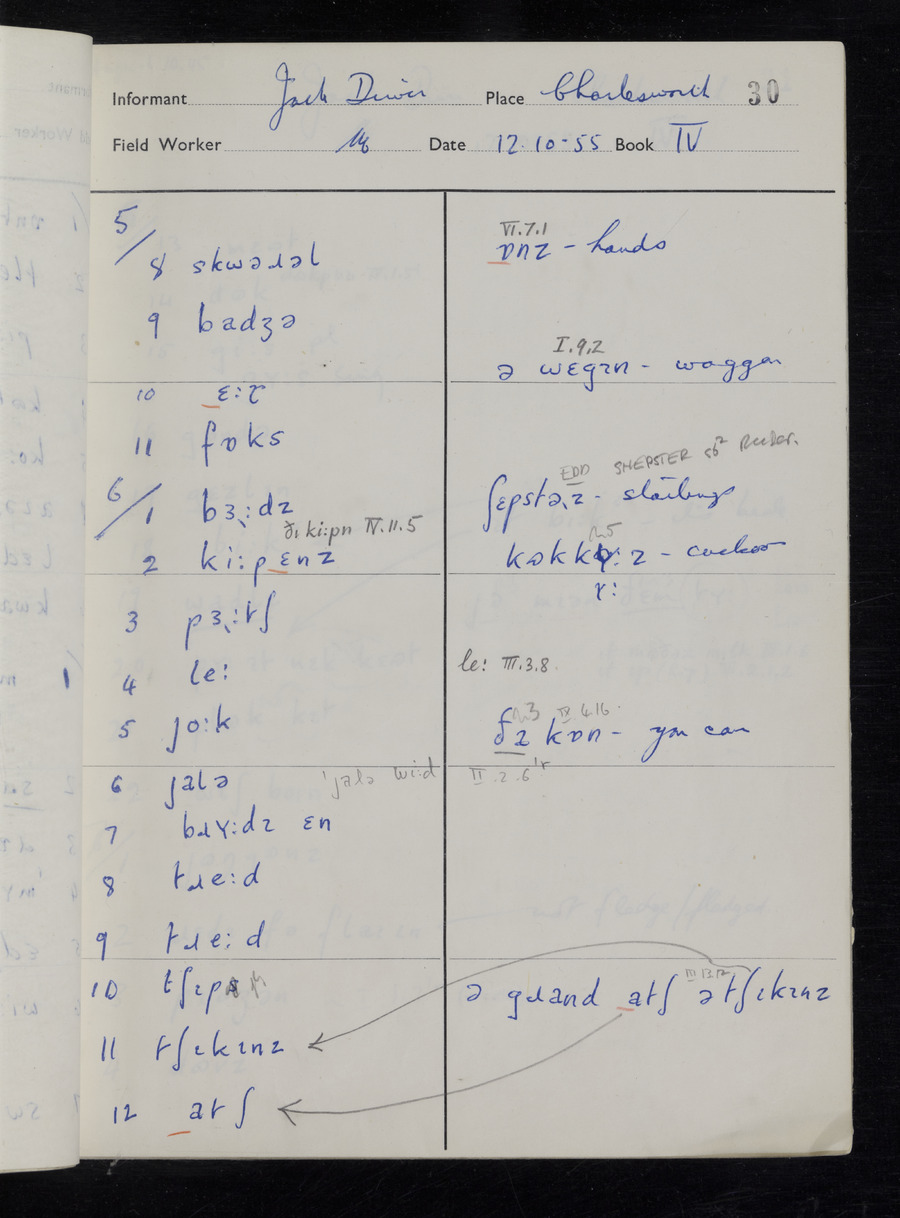 Informant Jack Driver Place Charlesworth 30
Field Worker Date 12.10-55 Book IV
5/8 skwəɹəl
9 badʒə
10 ɛ:ɾ
11 fɒks
6/1 bɜ˞:dz
ðɪ ki:pn IV.11.5
2 ki:pɛnz
3 pɜ˞:tʃ
4 le:
5 jo:k
6 jalə 'jalə wi:d II.2.6
7 bɹʏ:dɪ ɛn
8 tɹe:d
9 tɹe:d
10 tʃɛp
11 tʃɪkɪnz
12 atʃ
VI.7.1
ɒnz - hands
I.9.2
ə wɛgɪn - waggon
EDD SHEPSTER sb²
ʃɛpstə˞z - starlings
- cuckoo
ʏ:
le: III.3.8.
IX.4.16.
kɒn - you can
III.13.12
ə gɹand atʃ ə tʃɪkɪnz